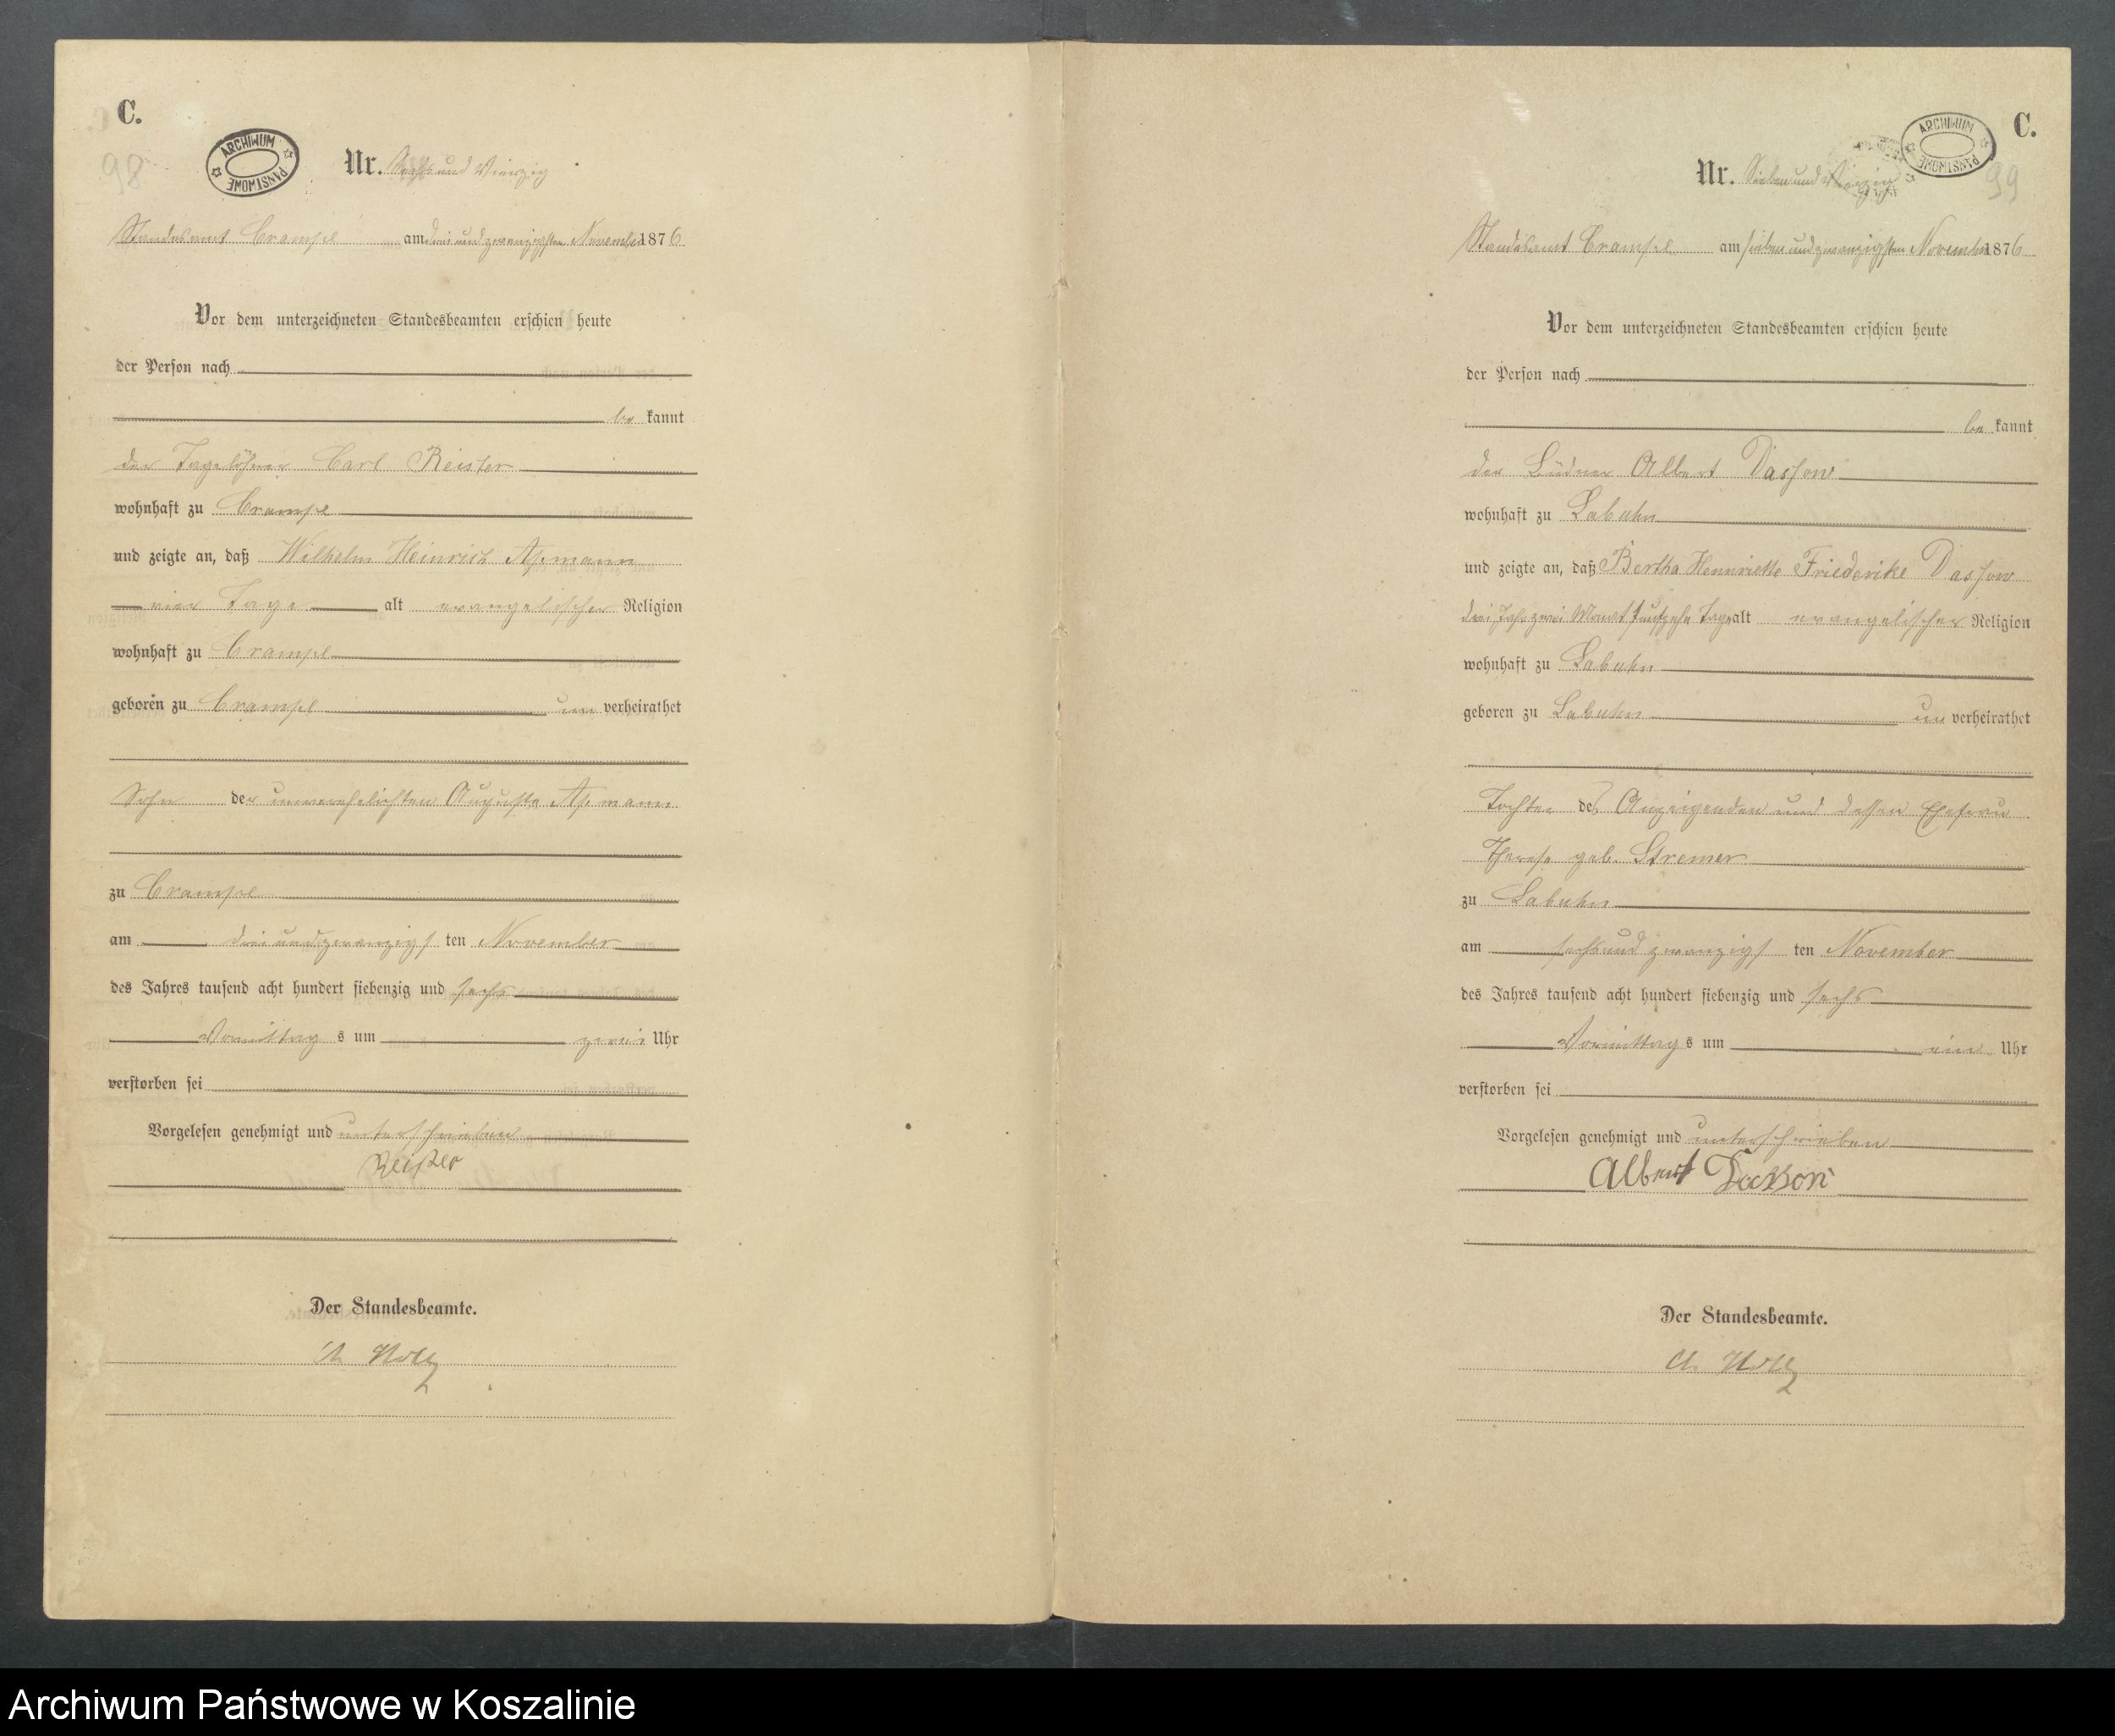 C.
98
ARCHIWUM PAŃSTWOWE
Nr. Sechs und Vierzig
Standesamt Crampe am drei und zwanzigsten November 1876
Vor dem unterzeichneten Standesbeamten erschien heute
der Person nach
be kannt
der Tagelöhner Carl Reister
wohnhaft zu Crampe
und zeigte an, daß Wilhelm Heinrich
vier Tage alt evangelischer Religion
wohnhaft zu Crampe
geboren zu Crampe un verheirathet
Sohn der unverehelichten Auguste
zu Crampe
am drei und zwanzigs ten November
des Jahres tausend acht hundert siebenzig und sechs
Vormittag s um zwei Uhr
verstorben sei
Vorgelesen genehmigt und unterschrieben
Der Standesbeamte.
C.
ARCHIWUM PAŃSTWOWE
99
Nr. Sieben und Vierzig
Standesamt Crampe am sieben und zwanzigsten November 1876
Vor dem unterzeichneten Standesbeamten erschien heute
der Person nach
be kannt
der Büdner Albert Dassow
wohnhaft zu Labuhn
und zeigte an, daß Bertha Hennriette Friederike Dassow
drei Jahr zwei Monat fünfzehn Tage alt evangelischer Religion
wohnhaft zu Labuhn
geboren zu Labuhn un verheirathet
Tochter des Anzeigenden und dessen Ehefrau
Therese geb. Stremer
zu Labuhn
am sechs und zwanzigs ten November
des Jahres tausend acht hundert siebenzig und sechs
Vormittag s um ein Uhr
verstorben sei
Vorgelesen genehmigt und unterschrieben
Albert Dasson
Der Standesbeamte.
Archiwum Państwowe w Koszalinie